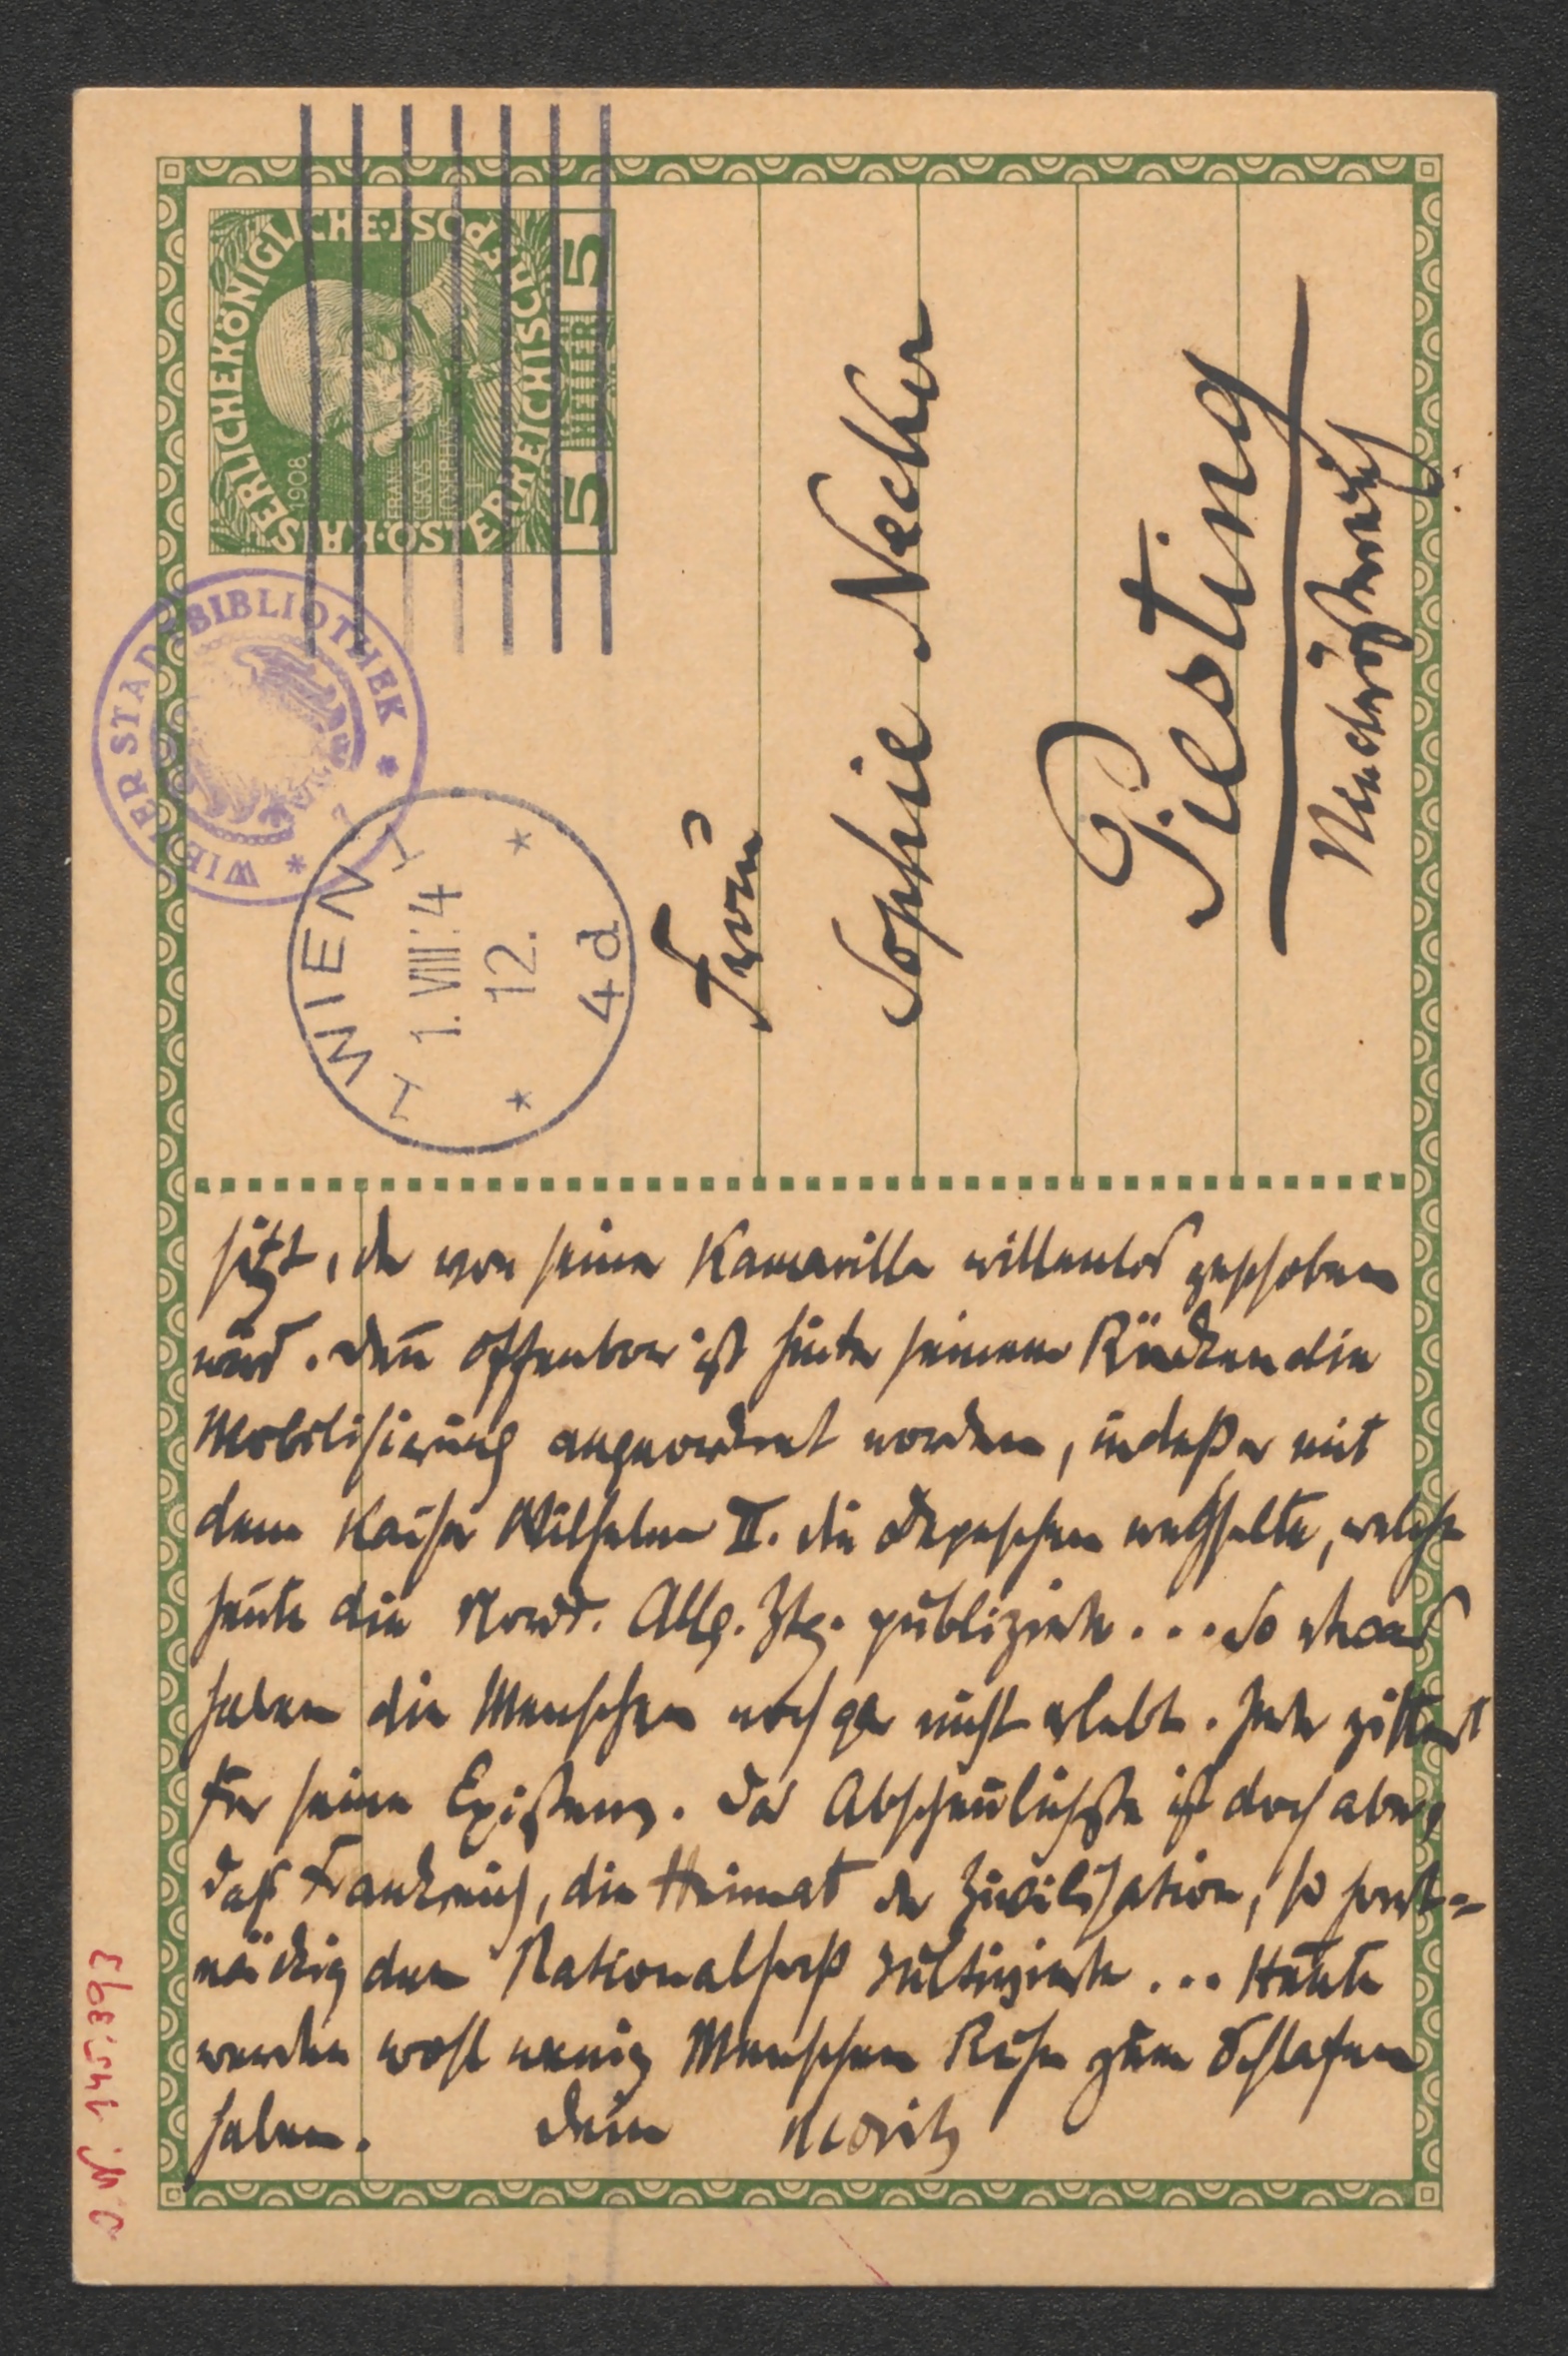 KAISERLICHE KÖNIGLICHE
ÖSTERREICHISCHE POST
1908
FRAN
CISCVS
IOSEPHVS I
5 HELLER 5
WIENER STADTBIBLIOTHEK
1 WIEN 1
1. VIII. 14
12.
4d
Frau
Sophie Necker
Piesting
Niederösterreich
sitzt, der von seiner Kamarilla willenlos geschoben
wird. Denn offenbar ist hinter seinem Rücken die
Mobilisierung angeordnet worden, indeß er mit
dem Kaiser Wilhelm II. die Depeschen wechselte, welche
heute die Nordd. Allg. Ztg. publizierte... So etwas
haben die Menschen noch gar nicht erlebt. Jeder zittert
für seine Existenz. Das Abscheulichste ist doch aber,
daß Frankreich, die Heimat der Zivilisation, so hart-
näckig den Nationalhaß kultivierte... Heute
werden wohl wenig Menschen Ruhe zum Schlafen
haben. Dein Moritz